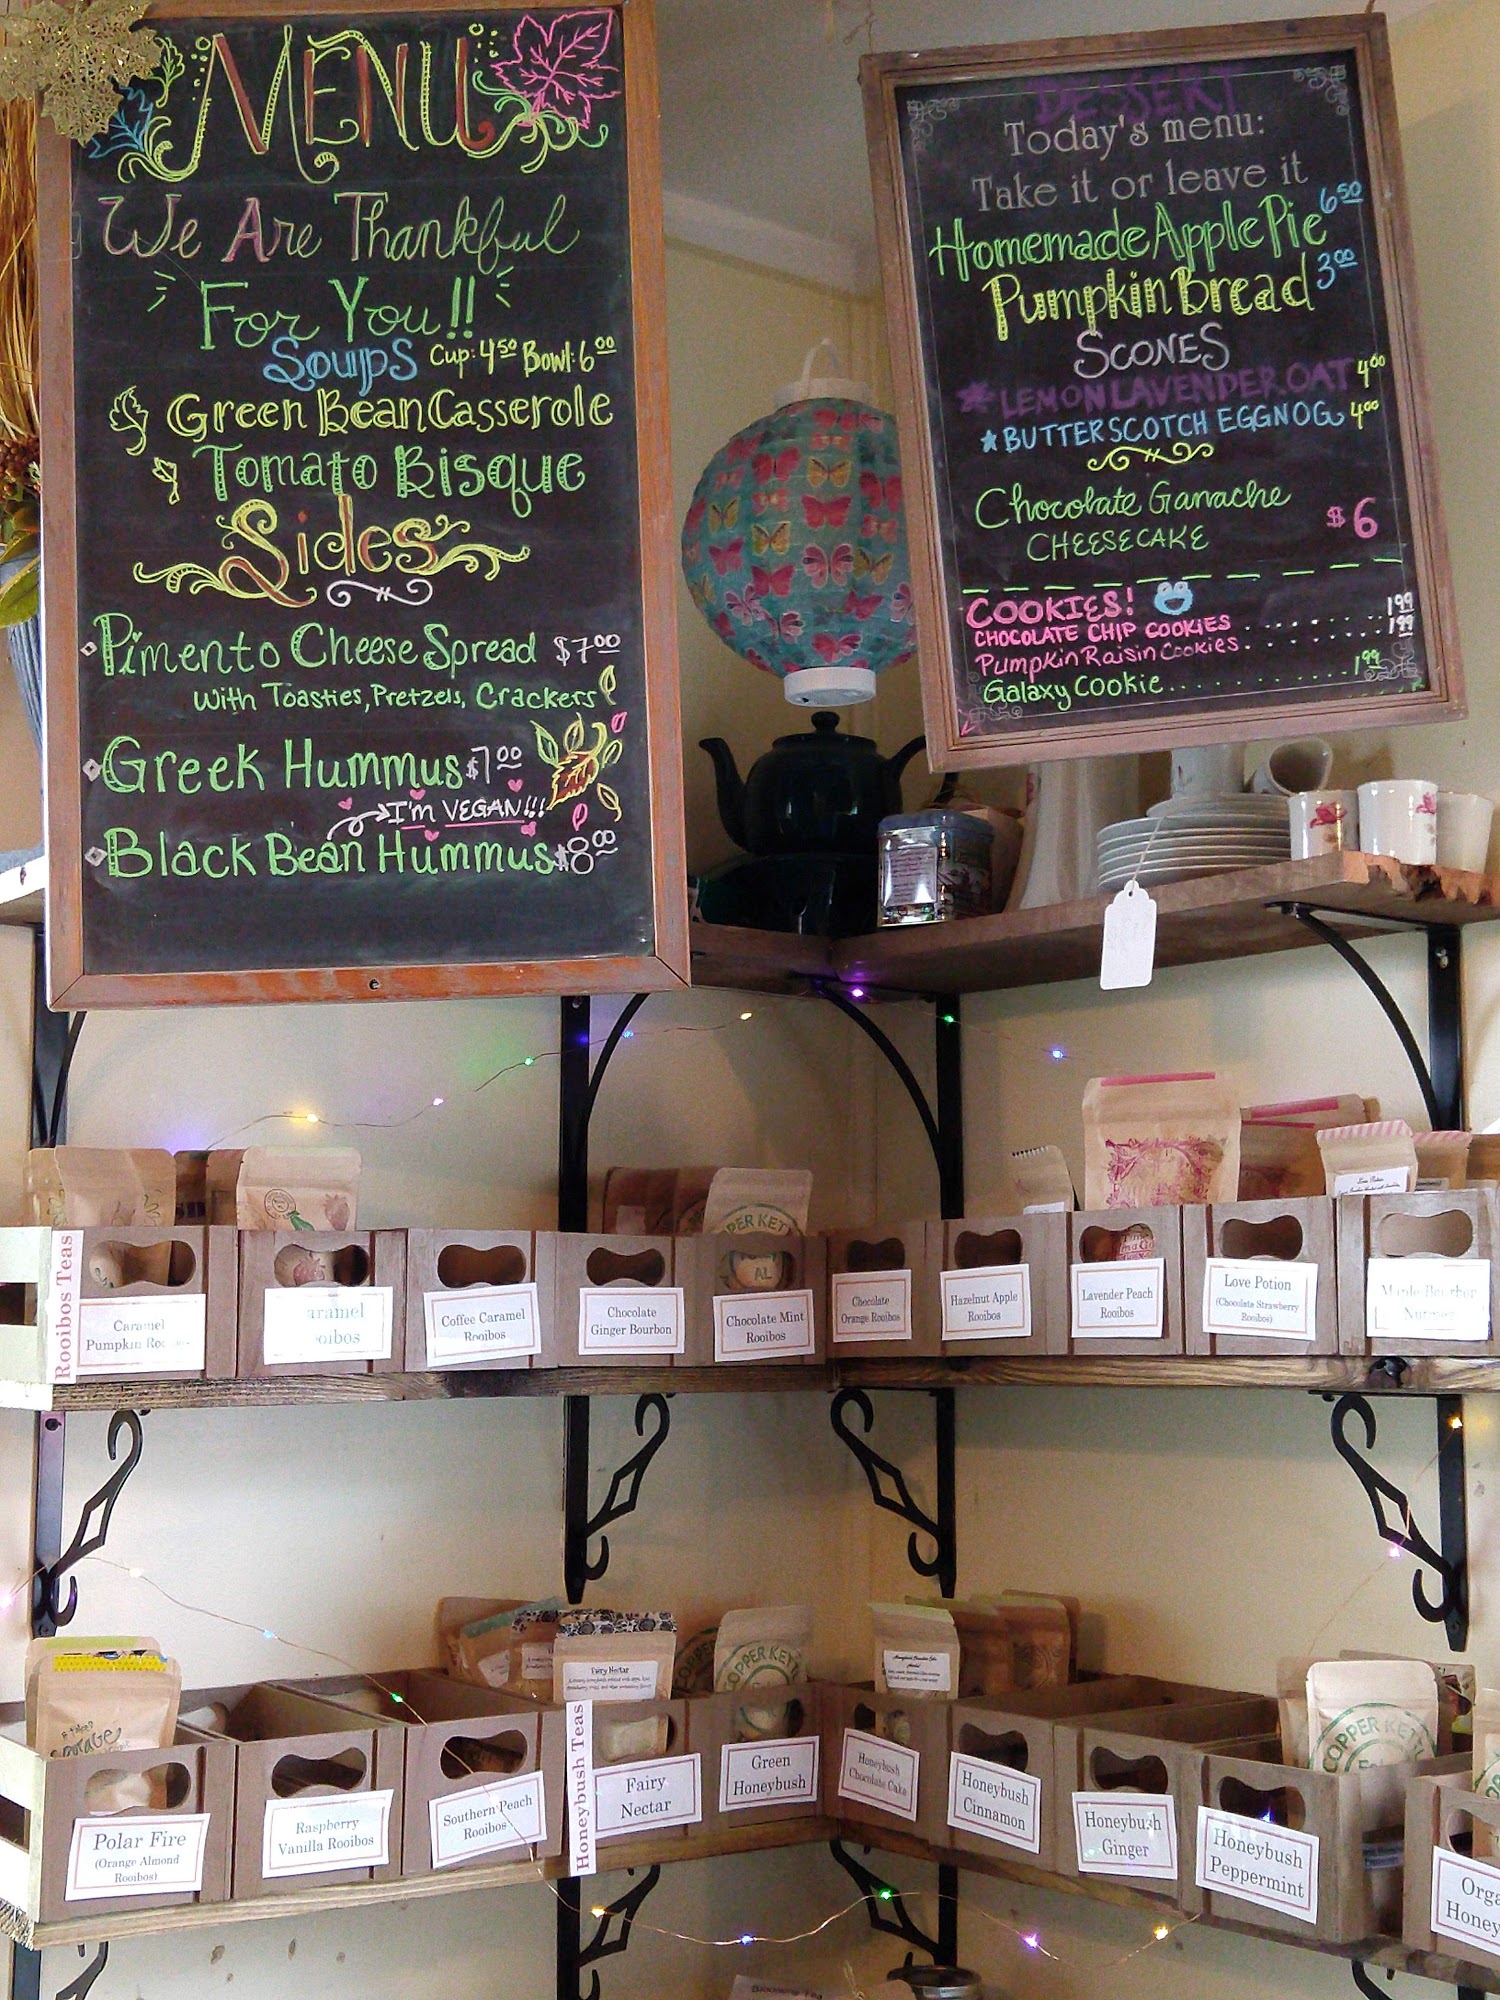 MENU
We Are Thankful
For You!!
Soups Cup: 4.50 Bowl: 6.00
Green Bean Casserole
Tomato Bisque
Sides
Pimento Cheese Spread $7.00
with Toasties, Pretzels, Crackers
Greek Hummus $7.00
I'm VEGAN!!!
Black Bean Hummus $8.00
DESSERT
Today's menu:
Take it or leave it
Homemade Apple Pie 6.50
Pumpkin Bread 3.00
SCONES
LEMON LAVENDER OAT 4.00
BUTTERSCOTCH EGGNOG 4.00
Chocolate Ganache
CHEESECAKE $6
COOKIES!
CHOCOLATE CHIP COOKIES 1.99
Pumpkin Raisin Cookies 1.99
Galaxy Cookie 1.99
Rooibos Teas
Caramel
Pumpkin
Coffee Caramel
Rooibos
Chocolate
Ginger Bourbon
COPPER KETT
AL
Chocolate Mint
Rooibos
Chocolate
Orange Rooibos
Hazelnut Apple
Rooibos
Lavender Peach
Rooibos
Love Potion
Love Potion
(Chocolate Strawberry
Rooibos)
Polar Fire
(Orange Almond
Rooibos)
Raspberry
Vanilla Rooibos
Southern Peach
Rooibos
Honeybush Teas
Fairy Nectar
Fairy
Nectar
COPPER KETTL
Green
Honeybush
Honeybush
Chocolate Cake
Honeybush
Cinnamon
Honeybush
Ginger
COPPER KETTL
Honeybush
Peppermint
Orga
Honey